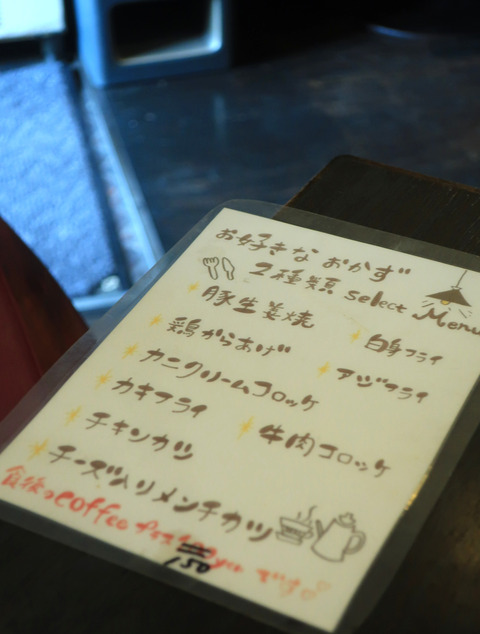 お好きなおかず
2種類 select Menu
豚生姜焼
鶏からあげ
カニクリームコロッケ
カキフライ
チキンカツ
チーズ入りメンチカツ
白身フライ
アジフライ
牛肉コロッケ
食後のcoffee プラス yen です
150